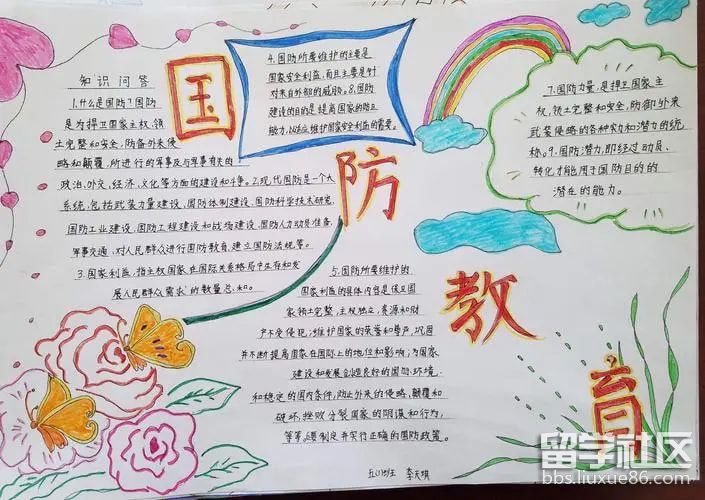 国
防
教
育
知识问答
1.什么是国防?国防
是为捍卫国家主权、领
土完整和安全,防备外来侵
略和颠覆,所进行的军事及与军事有关的
政治、外交、经济、文化等方面的建设和斗争。2.现代国防是一个大
系统,包括武装力量建设,国防体制建设,国防科学技术研究,
国防工业建设,国防工程建设和战场建设,国防人力动员准备,
军事交通,对人民群众进行国防教育,建立国防法规等。
3.国家利益,指主权国家在国际关系格局中生存和发
展人民群众需求的数量总和。
4.国防所要维护的主要是
国家安全利益,而且主要是针
对来自外部的威胁。8.国防
建设的目的是提高国家的防卫
能力,以达立维护国家安全利益的需要。
5.国防所要维护的
国家利益的具体内容是保卫国
家领土完整,主权独立,资源和财
产不受侵犯;维护国家的荣誉和尊严,巩固
并不断提高国家在国际上的地位和影响;为国家
建设和发展创造良好的国际环境
和稳定的国内条件;防止外来的侵略,颠覆和
破坏,挫败分裂国家的阴谋和行为,
等等。 制定并实行正确的国防政策。
7.国防力量,是捍卫国家主
权,领土完整和安全,防御外来
武装侵略的各种实力和潜力的统
称。9.国防潜力,即经过动员、
转化才能用于国防目的的
潜在的能力。
李天琪
留学社区
bbs.liuxue86.com